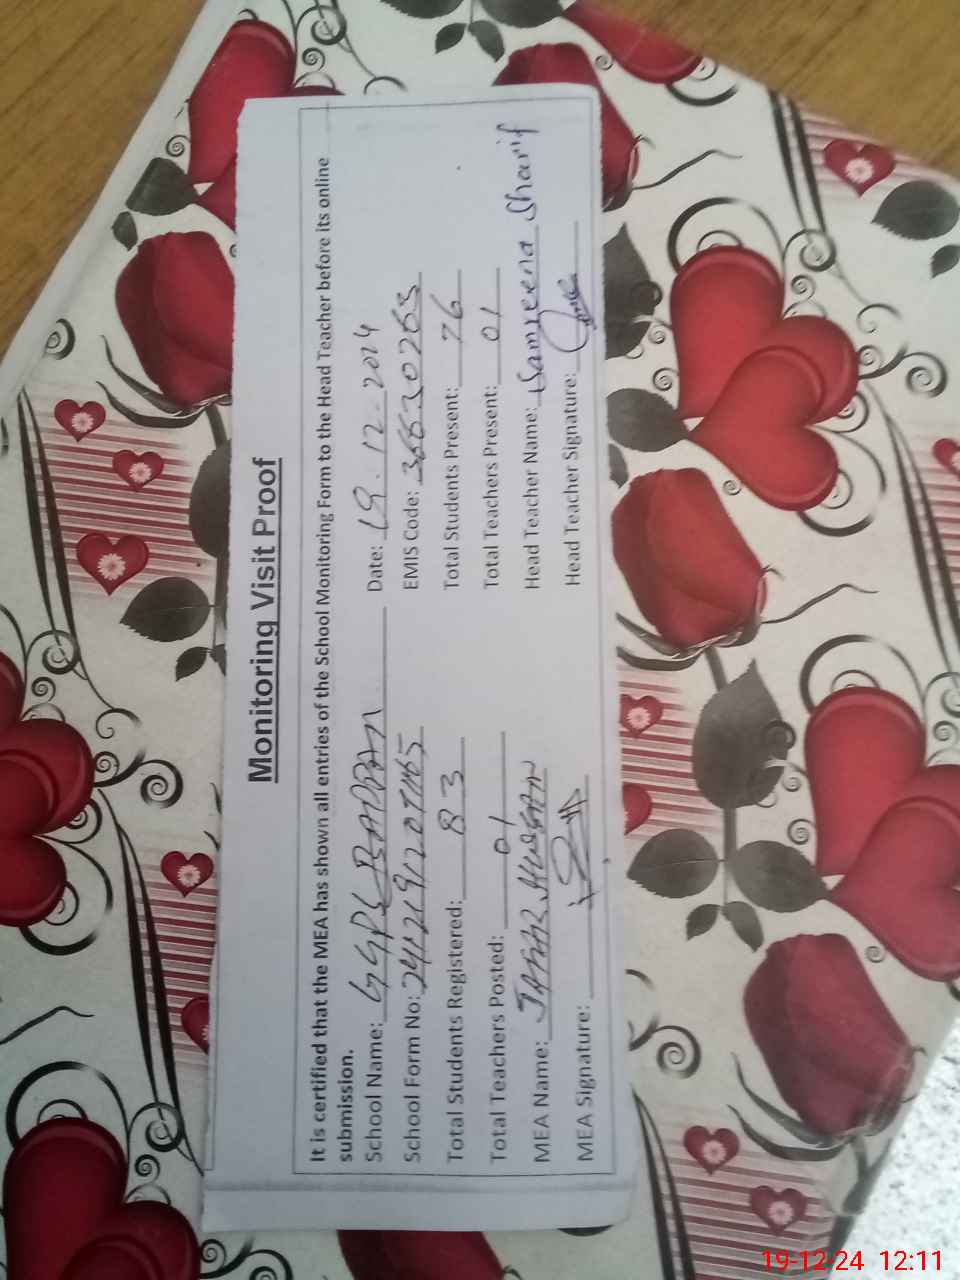 Monitoring Visit Proof
It is certified that the MEA has shown all entries of the School Monitoring Form to the Head Teacher before its online
submission.
School Name: GGPS BADDAN Date: 19.12.2024
School Form No: EMIS Code: 36630263
Total Students Registered: 83 Total Students Present: 76
Total Teachers Posted: 01 Total Teachers Present: 01
MEA Name: JAFAR HUSSAN Head Teacher Name: Samreena Sharif
MEA Signature: Head Teacher Signature:
19-12-24 12:11